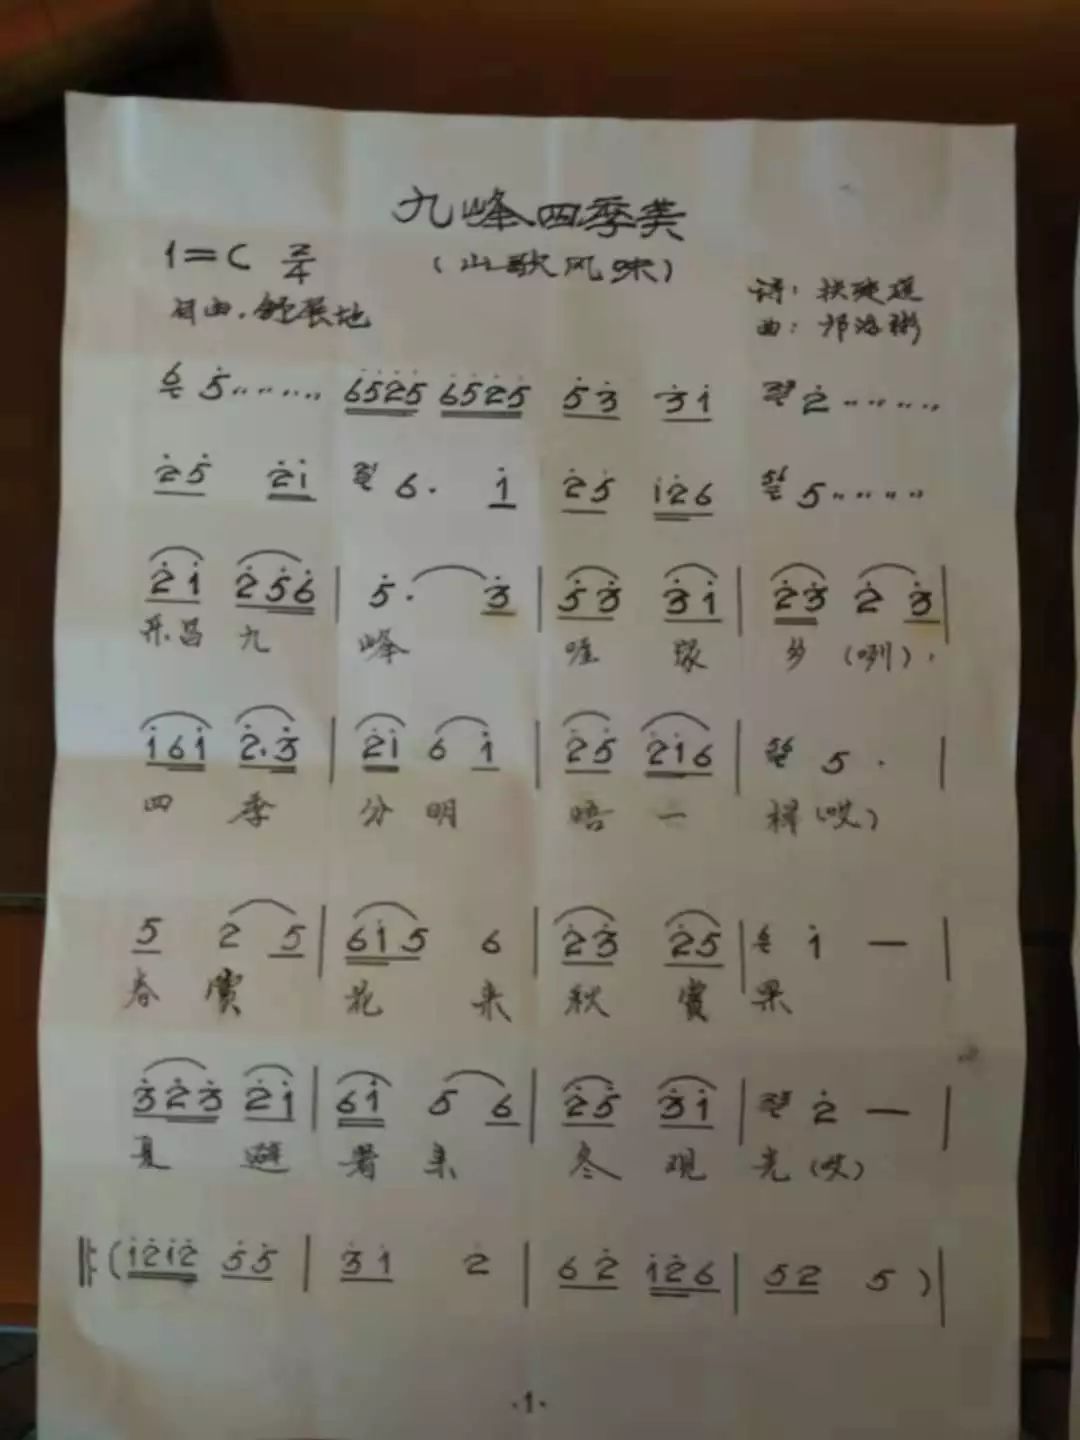 九峰四季美
(山歌风味)
1=C 2/4
自由.舒展地
诗:
曲:
5̇ ...... 6̇5̇2̇5̇ 6̇5̇2̇5̇ 5̇3̇ 3̇1̇ 2̇ ......
2̇5̇ 2̇1̇ 6. 1̇ 2̇5̇ 1̇2̇6 5 ......
2̇1̇ 2̇5̇6̇ | 5̇. 3̇ | 5̇3̇ 3̇1̇ | 2̇3̇ 2̇ 3̇ |
九 峰 乡(咧),
1̇61̇ 2̇.3̇ | 2̇1̇ 6 1̇ | 2̇5̇ 2̇1̇6 | 56 5. |
四 季 分 明 唔 一 样(哎)
5 2 5 | 61̇5 6 | 2̇3̇ 2̇5 | 6 1̇ — |
春 赏 花 来 秋 赏 果
3̇2̇3̇ 2̇1̇ | 61̇ 5 6 | 2̇5̇ 3̇1̇ | 2̇ — |
夏 避 暑 来 冬 观 光(哎)
‖:(1̇2̇1̇2̇ 5̇5̇ | 3̇1̇ 2̇ | 62̇ 1̇2̇6 | 52 5 )|
·1·